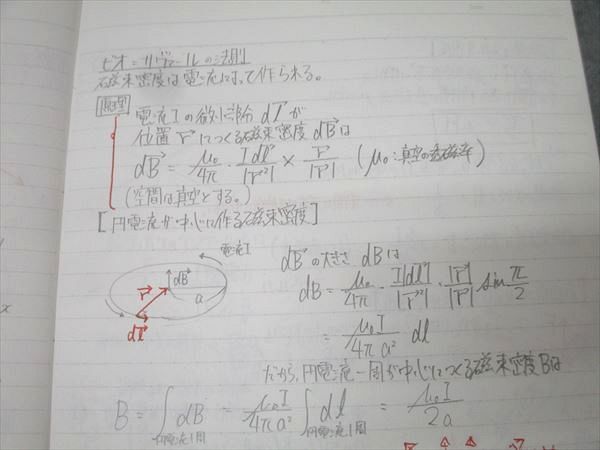 ビオ=サヴァールの法則
磁束密度は電流によって作られる。
原理 電流Iの微小部分 dl⃗ が
位置 r⃗ につくる磁束密度 dB⃗ は
dB⃗ = μ₀/4π · Idl⃗/|r⃗²| × r⃗/|r⃗| (μ₀:真空の透磁率)
(空間は真空とする。)
[円電流が中心に作る磁束密度]
電流I
dB⃗
r⃗
a
dl⃗
dB⃗ の大きさ dBは
dB = μ₀/4π · I|dl⃗|/|r⃗²| · |r⃗|/|r⃗| sin π/2
= μ₀I/4πa² dl
だから、円電流一周が中心につくる磁束密度Bは
B = ∫円電流1周 dB = μ₀I/4πa² ∫円電流1周 dl = μ₀I/2a
x